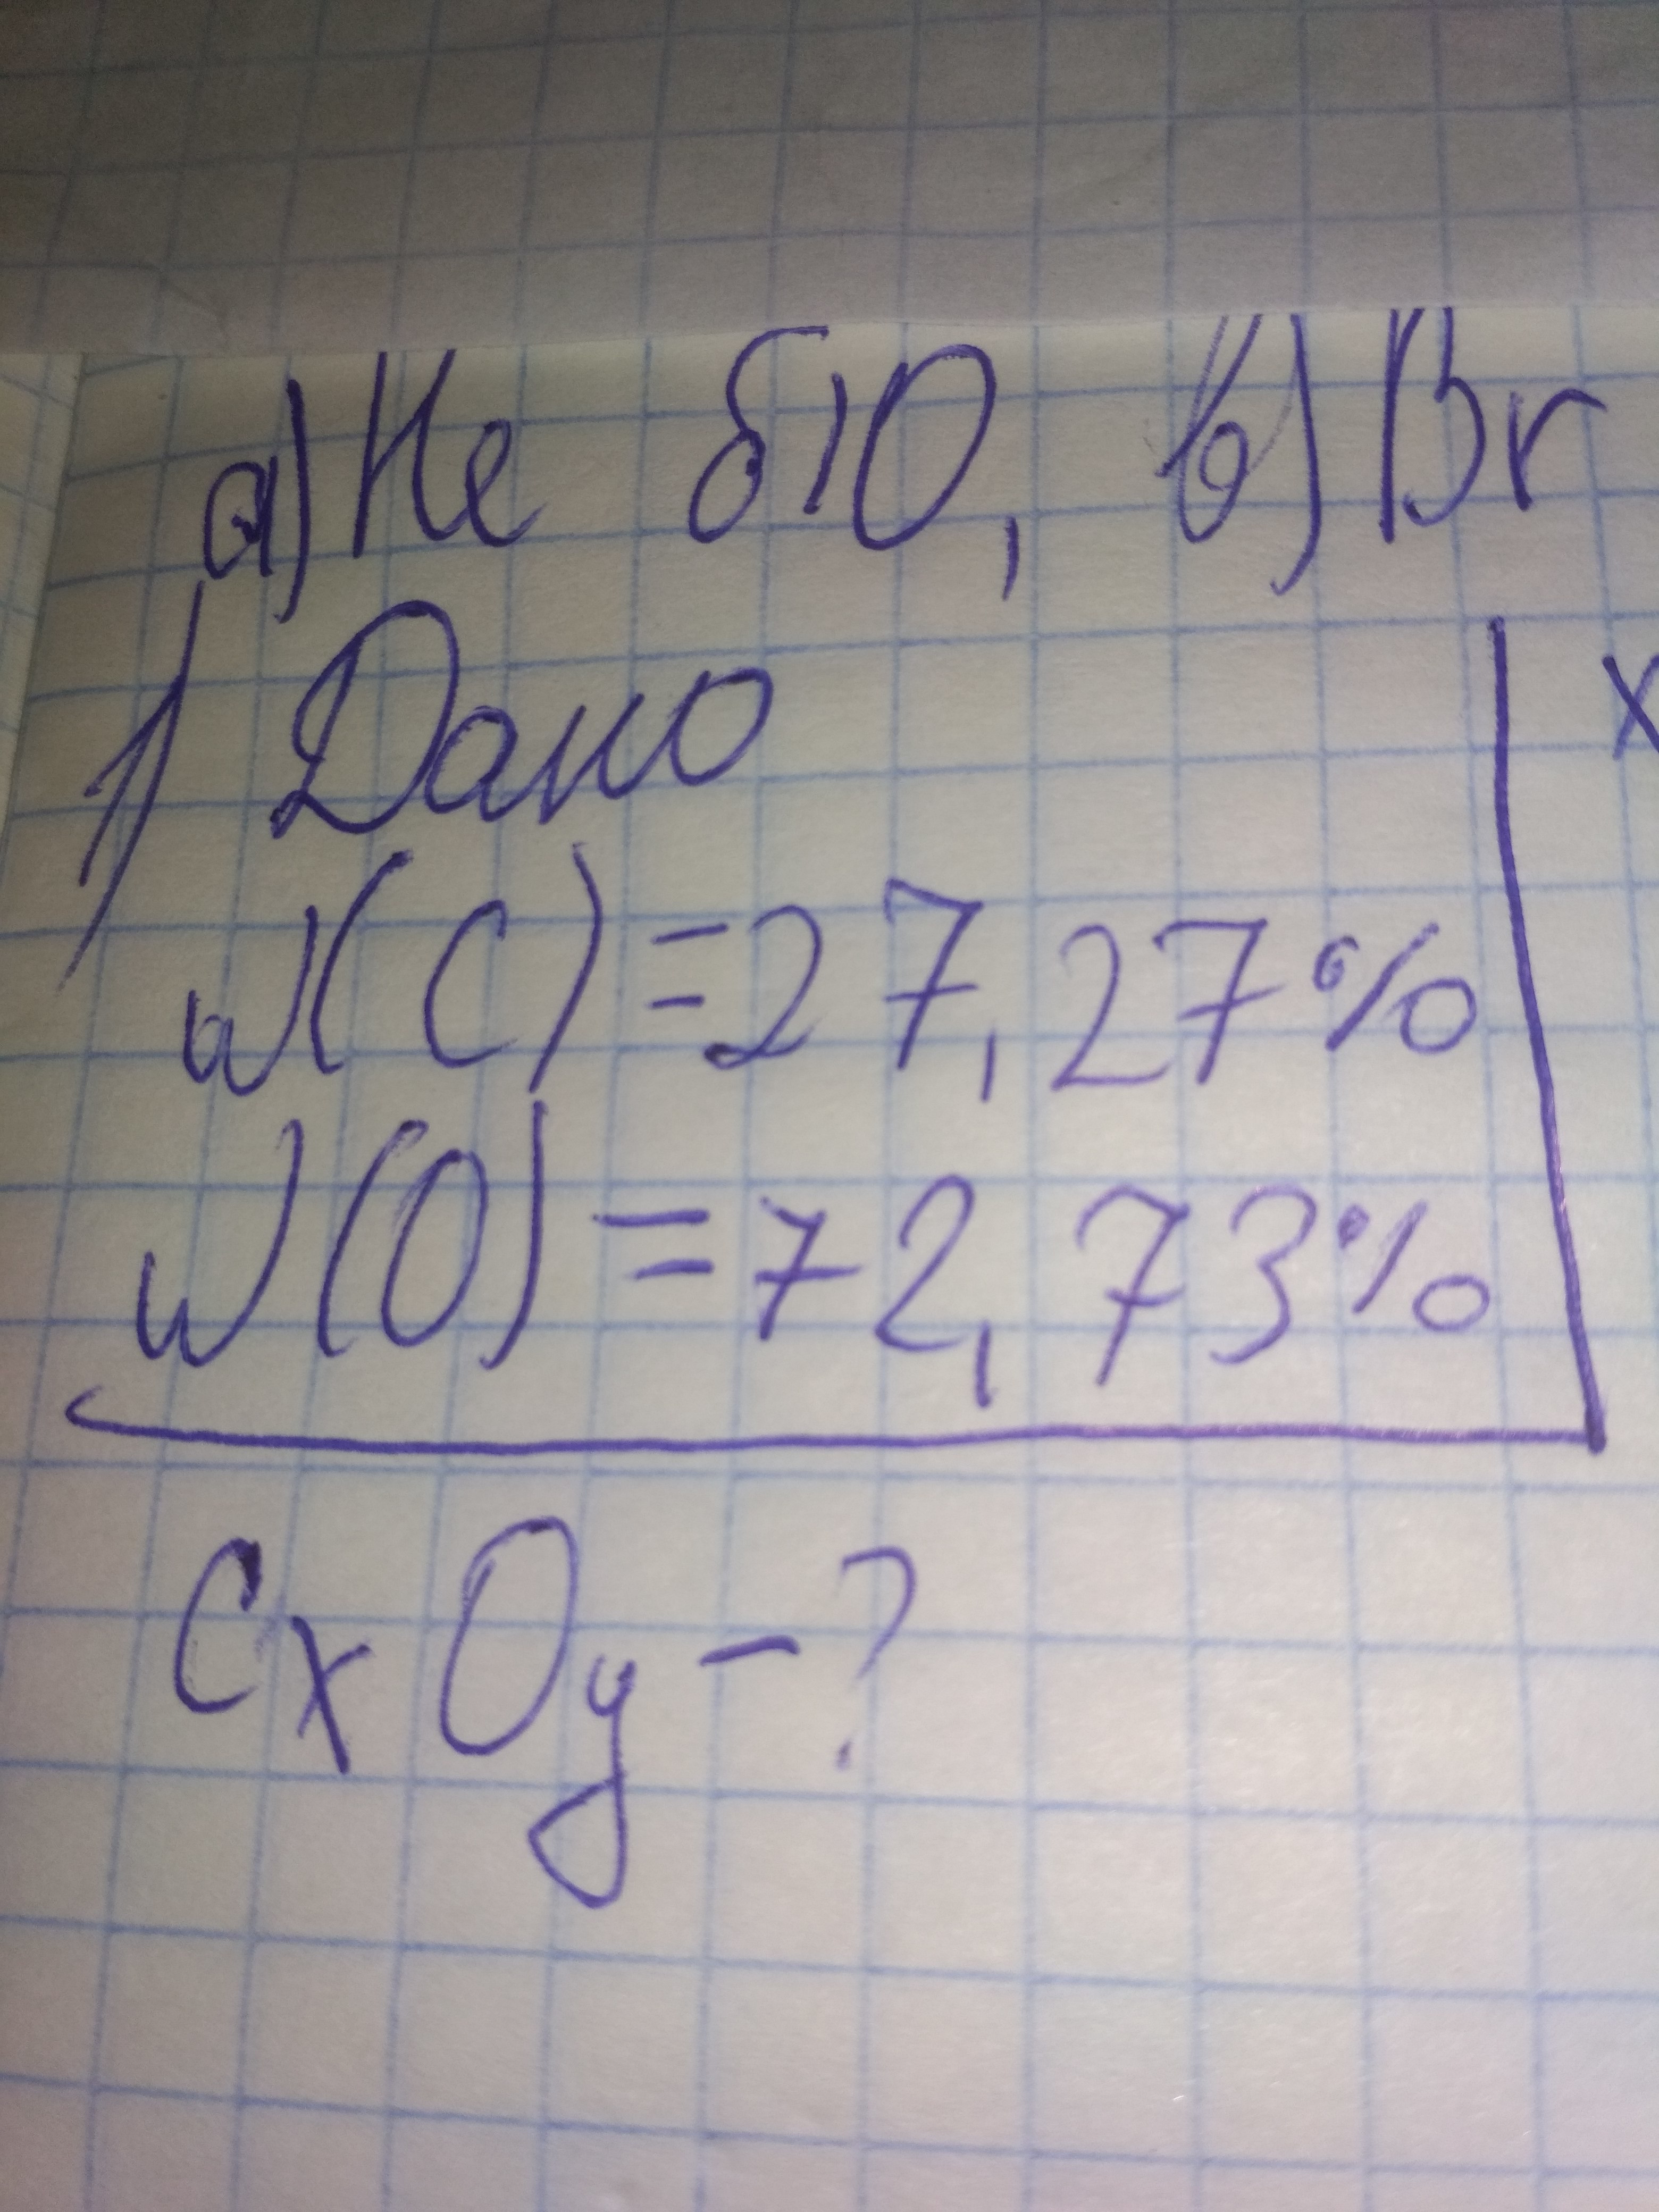 а) He б) O, в) Br
1) Дано
w(C)=27,27%
w(O)=72,73%
CxOy-?